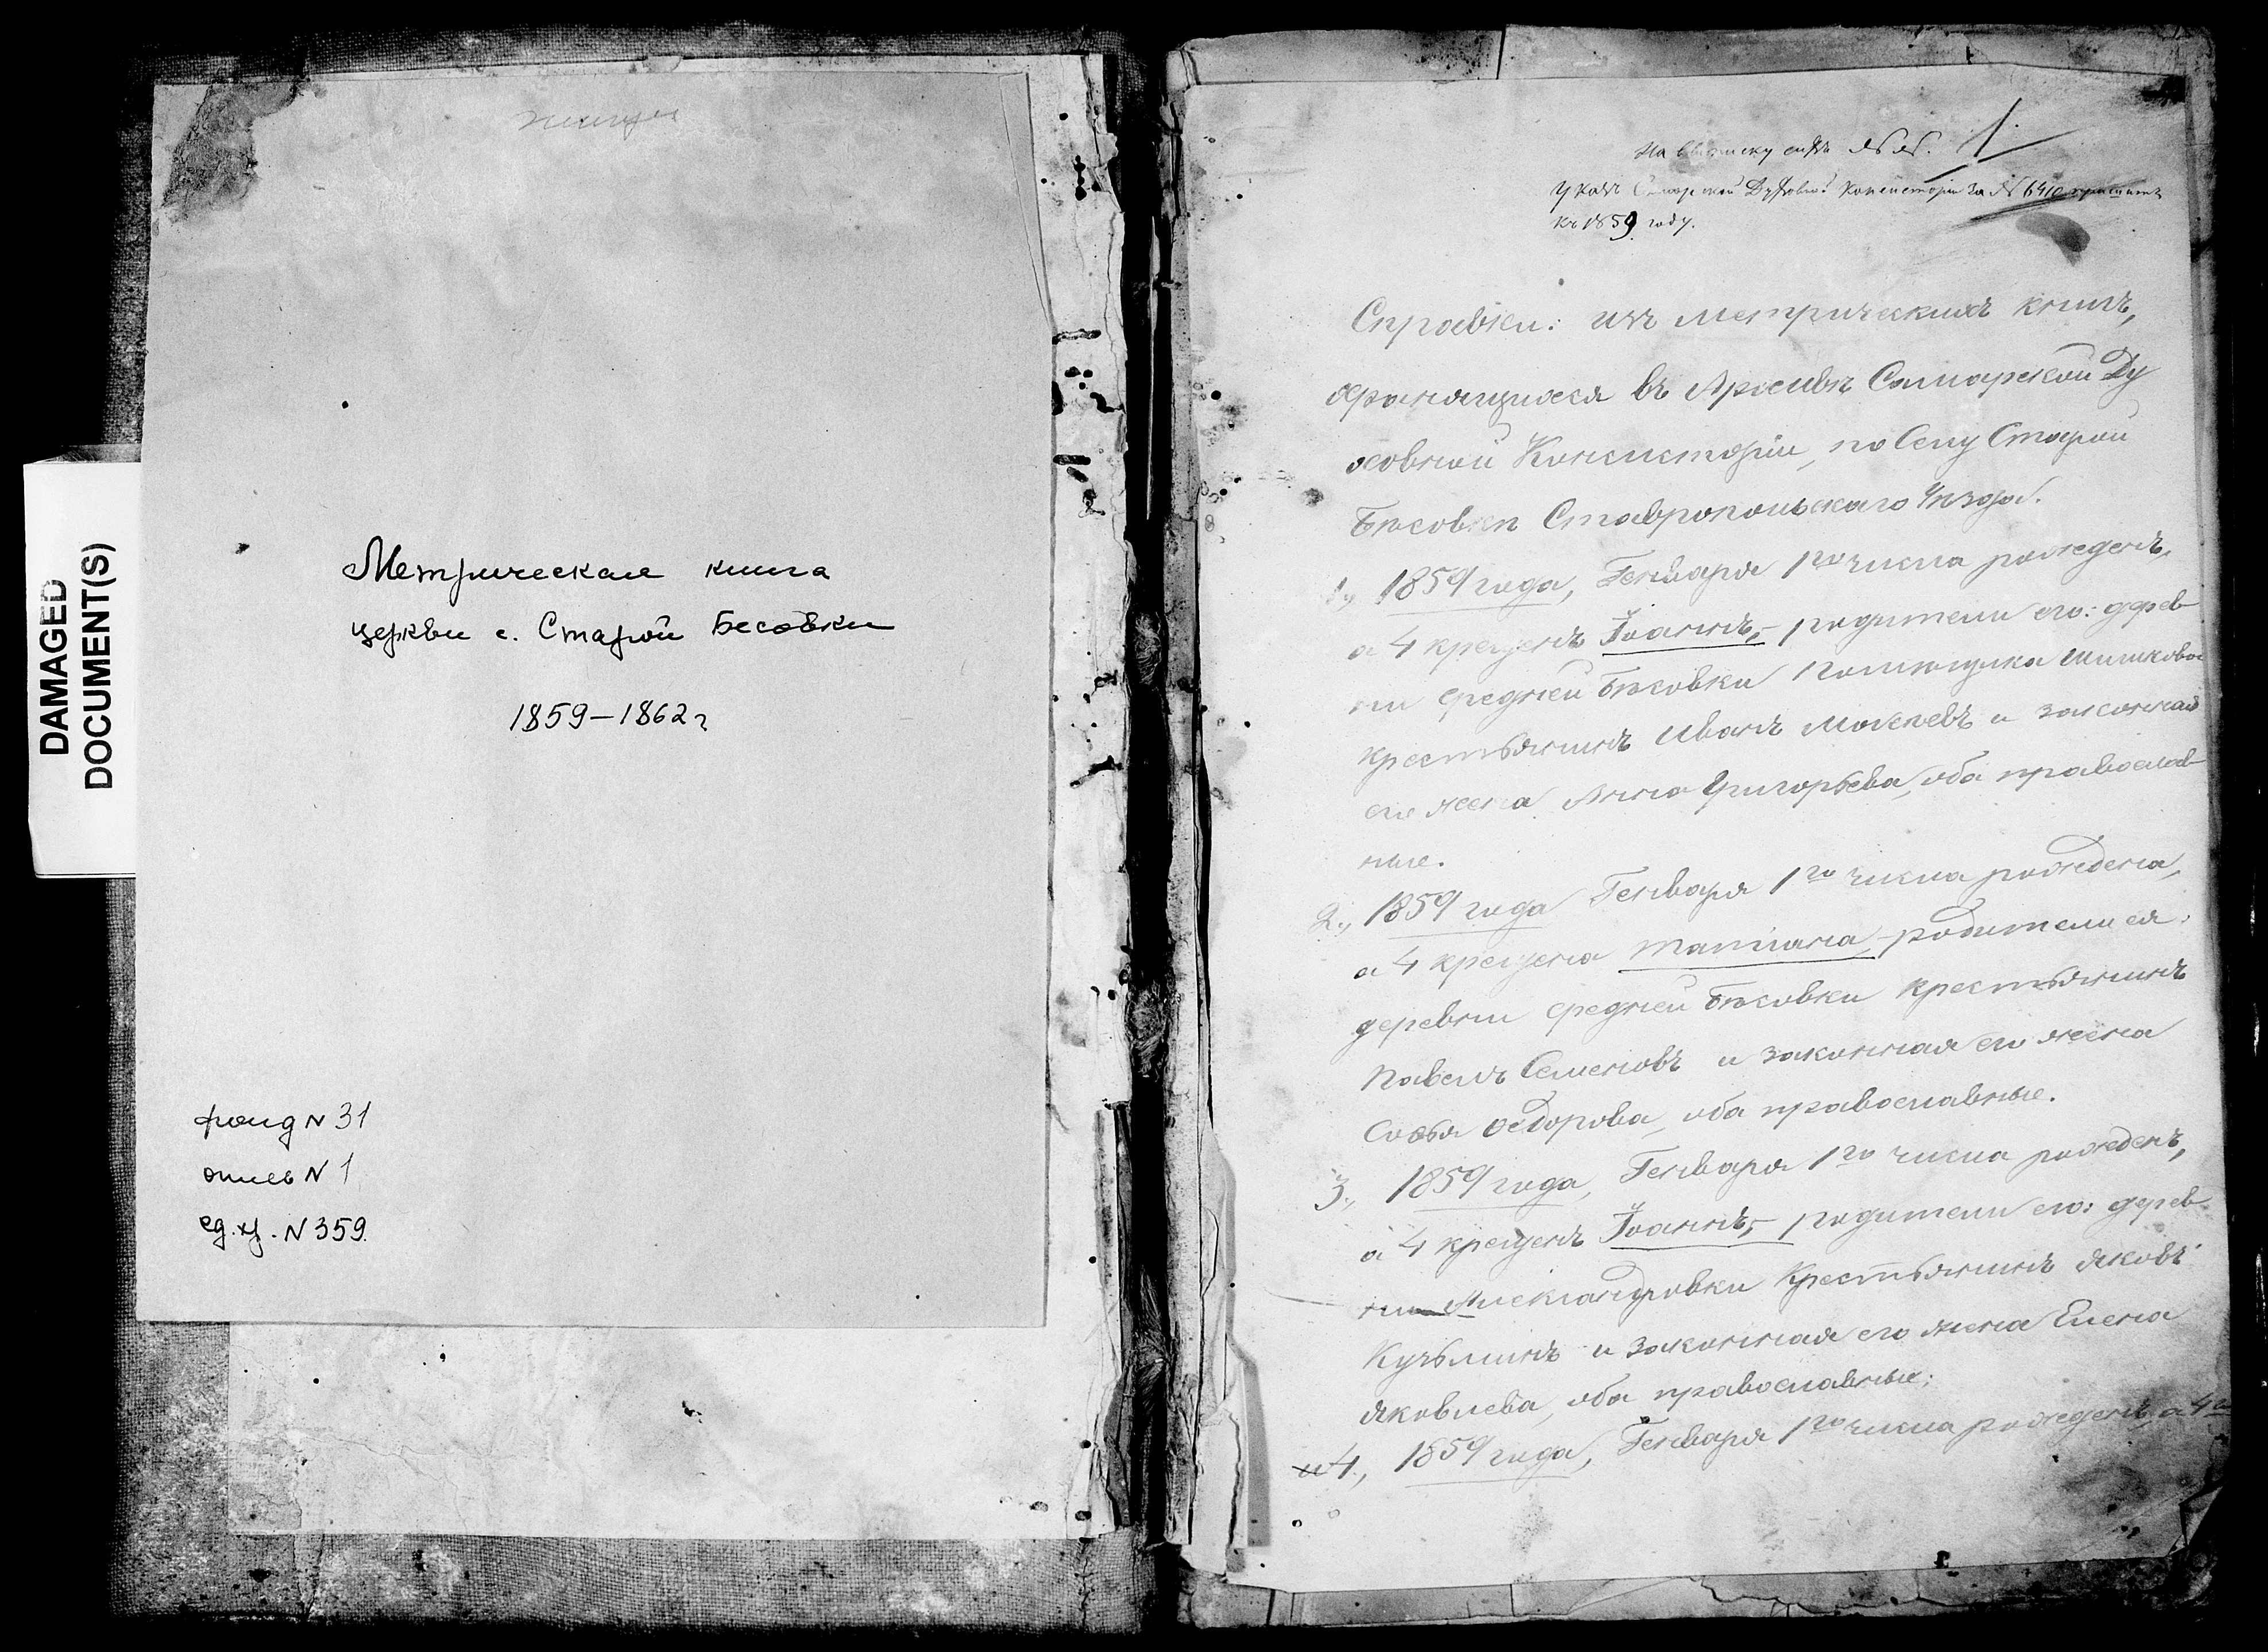 DAMAGED
DOCUMENT(S)
Метрическая книга
церкви с. Старой Бесовки
1859–1862 г
фонд N 31
опись N 1
ед. хр. N 359.
На выписку
1.
Указъ Самарской Духовной Консисторіи за № 6410
къ 1859 году.
Справки: изъ метрическихъ книгъ,
хранящихся въ Архивѣ Самарской Ду
ховной Консисторіи, по Селу Старой
Бѣсовкѣ Ставропольскаго Уѣзда.
1., 1859 года, Генваря 1го числа рожденъ,
а 4 крещенъ Іоаннъ, – родители его: дерев
ни средней Бѣсовки Помѣщика Шишкова
крестьянинъ Иванъ Мокѣевъ и законная
его жена Анна Григорьева, оба православ
ные.
2., 1859 года Генваря 1го числа рождена,
а 4 крещена Татіана, – родители ея:
деревни средней Бѣсовки крестьянинъ
Павелъ Семеновъ и законная его жена
Софья Ѳедорова, оба православные.
3., 1859 года, Генваря 1го числа рожденъ,
а 4 крещенъ Іоаннъ, – родители его: дерев
ни Александровки Крестьянинъ Яковъ
Кузьминъ и законная его жена Елена
Яковлева, оба православные;
и 4., 1859 года, Генваря 1го числа рожденъ, а 4го